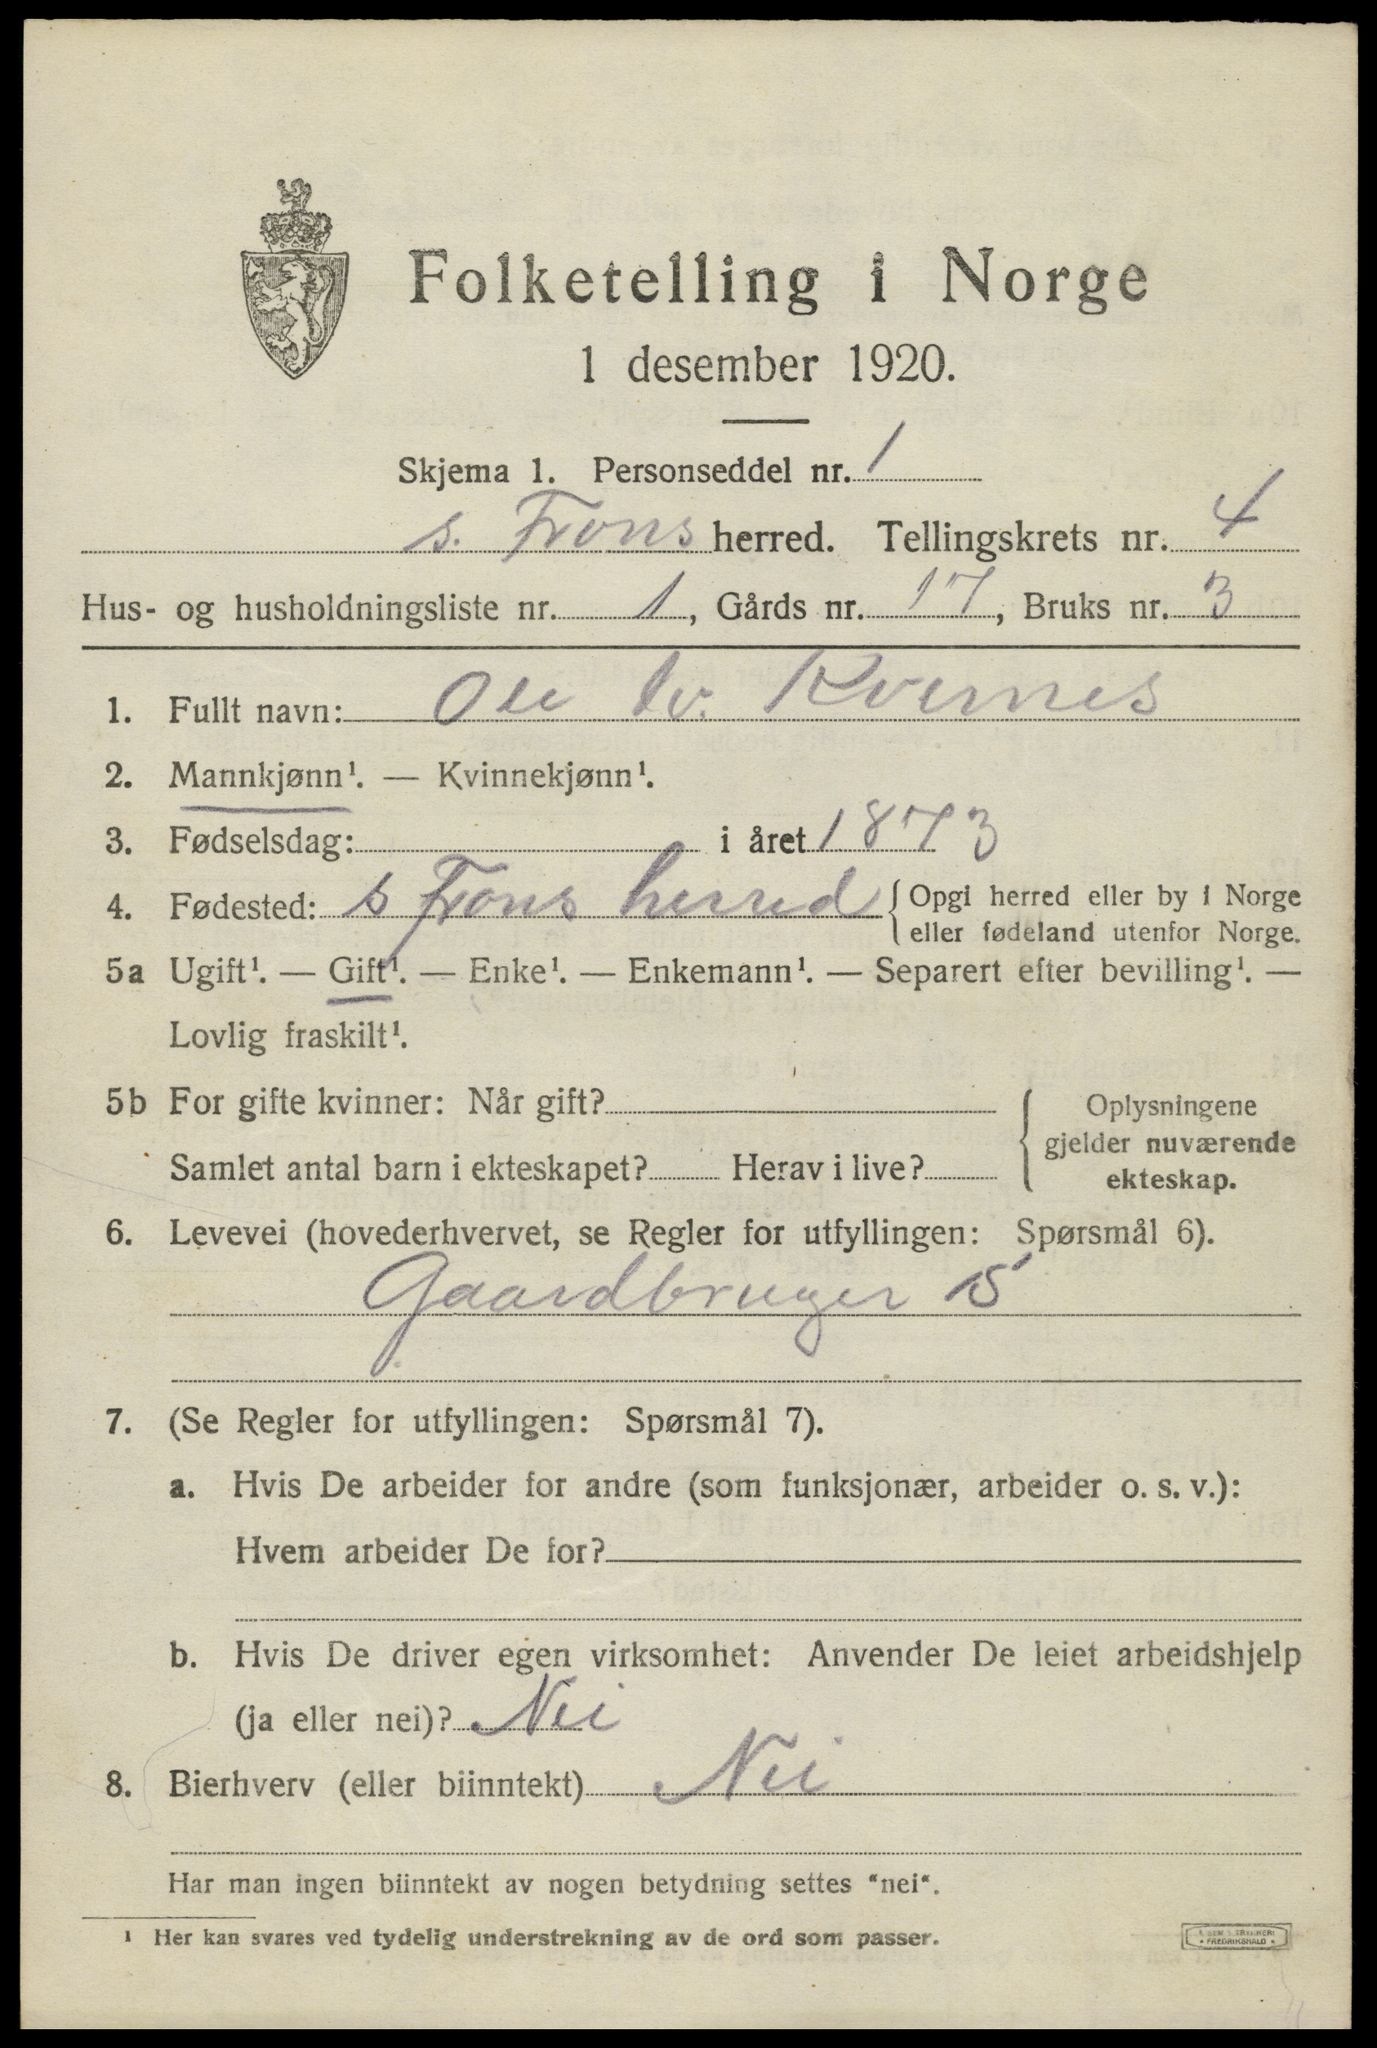 Folketelling i Norge
1 desember 1920.
Skjema 1. Personseddel nr. 1
s. Frons herred. Tellingskrets nr. 4
Hus- og husholdningsliste nr. 1, Gårds nr. 17, Bruks nr. 3
1. Fullt navn: Ole Iv. Kvernes
2. Mannkjønn¹. — Kvinnekjønn¹.
3. Fødselsdag: i året 1873
4. Fødested: s Frons herred { Opgi herred eller by i Norge
eller fødeland utenfor Norge.
5a Ugift¹. — Gift¹. — Enke¹. — Enkemann¹. — Separert efter bevilling¹. —
Lovlig fraskilt¹.
5b For gifte kvinner: Når gift?
Samlet antal barn i ekteskapet? Herav i live?
{ Oplysningene
gjelder nuværende
ekteskap.
6. Levevei (hovederhvervet, se Regler for utfyllingen: Spørsmål 6).
Gaardbruger S
7. (Se Regler for utfyllingen: Spørsmål 7).
a. Hvis De arbeider for andre (som funksjonær, arbeider o. s. v.):
Hvem arbeider De for?
b. Hvis De driver egen virksomhet: Anvender De leiet arbeidshjelp
(ja eller nei)? Nei
8. Bierhverv (eller biinntekt) Nei
Har man ingen biinntekt av nogen betydning settes "nei".
¹ Her kan svares ved tydelig understrekning av de ord som passer.
FREDRIKSHALD